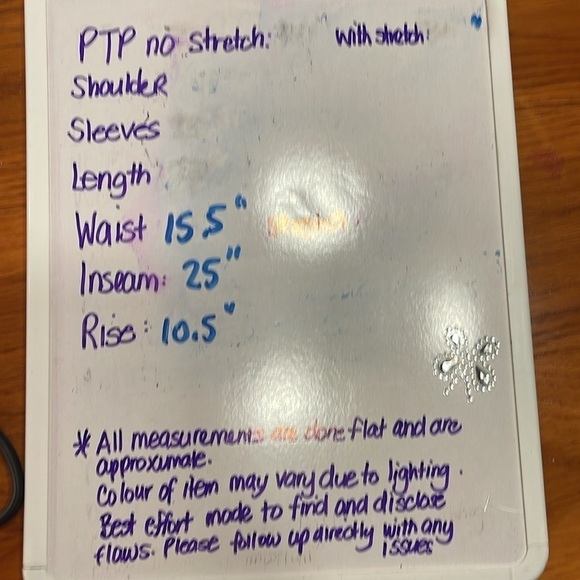 PTP no Stretch: with stretch:
ShouldeR
Sleeves
Length
Waist 15.5"
Inseam: 25"
Rise: 10.5"
* All measurements are done flat and are
approxumate.
Colour of item may vary due to lighting.
Best effort made to find and disclose
flaws. Please follow up directly with any
issues